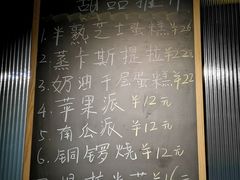 甜品推介
1.半熟芝士蛋糕¥26
2.蒸卡斯提拉¥22元
3.奶油千层蛋糕¥22
4.苹果派¥12元
5.南瓜派¥12元
6.铜锣烧¥12元